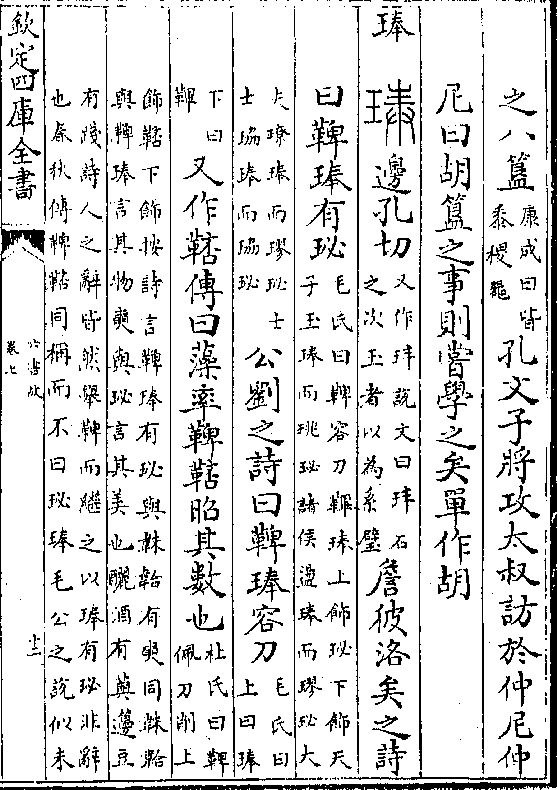 之八簋康成曰皆黍稷龜孔文子將攻太叔訪於仲尼仲
尼曰胡簋之事則嘗學之矣單作胡
琫 邊孔切又作玤說文曰玤石之次玉者以為系璧詹彼洛矣之詩
曰鞞琫有珌毛氏曰鞞容刀鞞琫上飾珌下飾天子玉琫而珧珌諸侯璗琫而璆珌大
夫璙琫而璆珌士士珕琫而珕珌公劉之詩曰鞞琫容刀毛氏曰上曰琫
下曰鞞又作鞛傳曰藻率鞞鞛昭其數也杜氏曰鞞佩刀削上
飾鞛下飾按詩言鞞琫有珌與韎韐有奭同韎韐
與鞞琫言其物奭與珌言其美也釃酒有藇籩豆
有踐詩人之辭皆然舉鞞而繼之以琫有珌非辭
也春秋傳鞞鞛同稱而不曰珌琫毛公之說似未
欽定四庫全書
六書故
卷七
十三